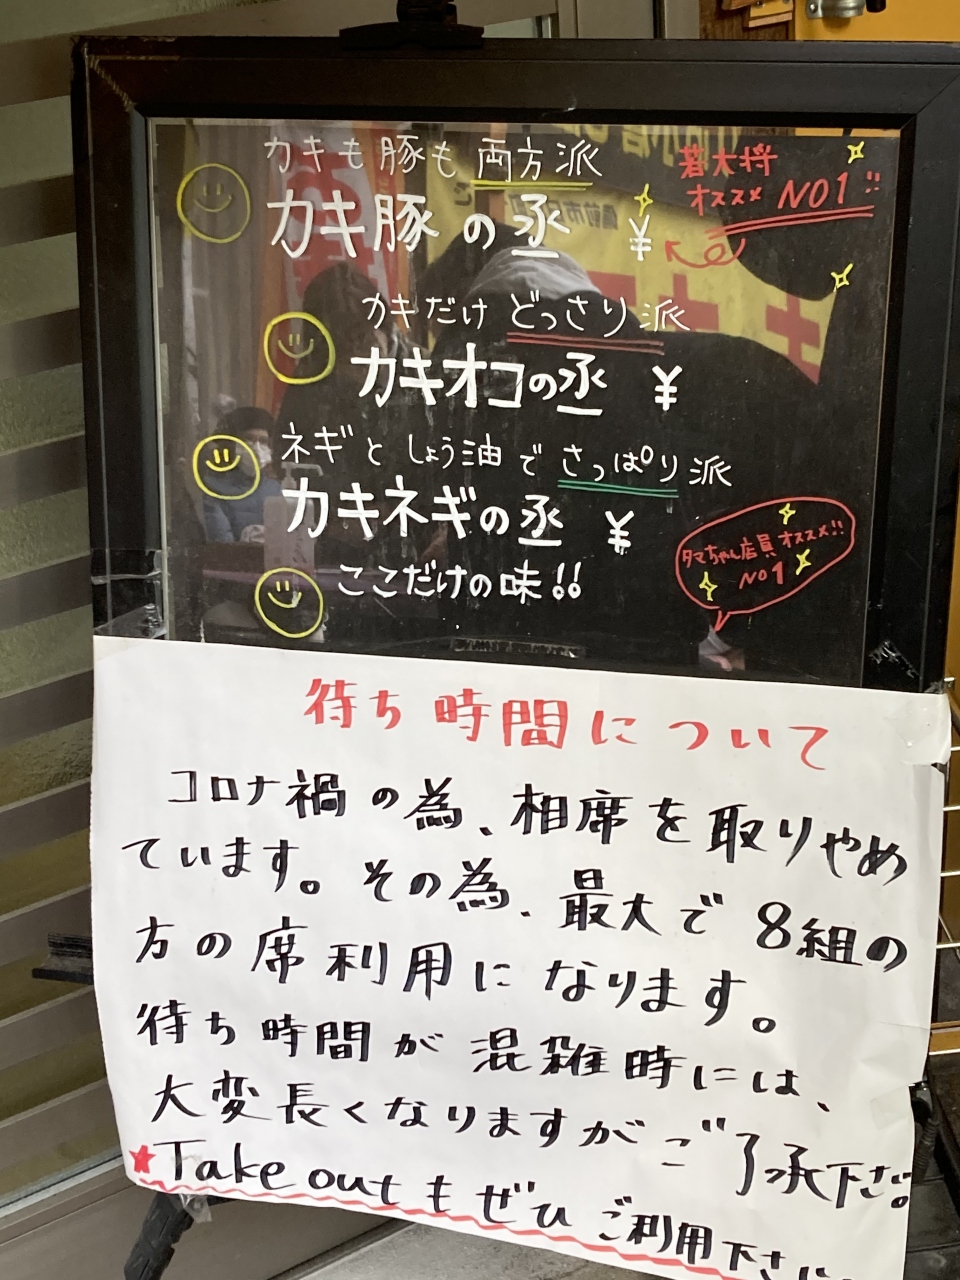 カキも豚も両方派
若大将
オススメ NO1!!
カキ豚の丞 ¥
カキだけどっさり派
カキオコの丞 ¥
ネギとしょう油でさっぱり派
カキネギの丞 ¥
タマちゃん店員オススメ!!
NO1
ここだけの味!!
待ち時間について
コロナ禍の為、相席を取りやめ
ています。その為、最大で8組の
方の席利用になります。
待ち時間が混雑時には、
大変長くなりますがご了承下さい。
★Take outもぜひご利用下さい